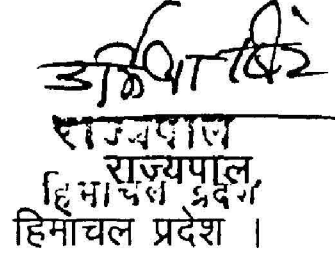 उर्मिला सिंह
राज्यपाल
राज्यपाल,
हिमाचल प्रदेश
हिमाचल प्रदेश ।